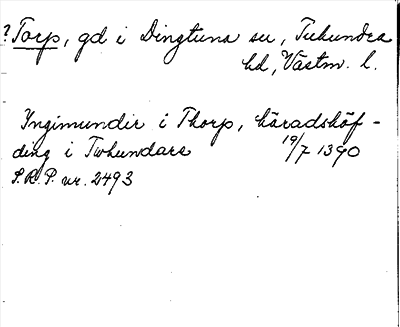 ? Torp, gd i Dingtuna sn, Tuhundra
hd, Västm. l.
Yngimundir i Thorp, häradshöf-
ding i Twhundare 19/7 1390
S.R.P. nr. 2493